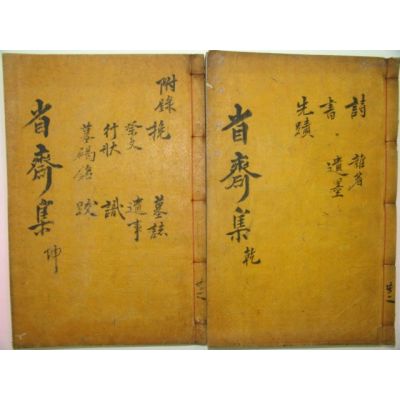 詩 雜著
書
先蹟
省齋集 乾
共二
附錄 挽 墓誌
祭文 遺事
行狀 識
墓碣銘 跋
省齋集 坤